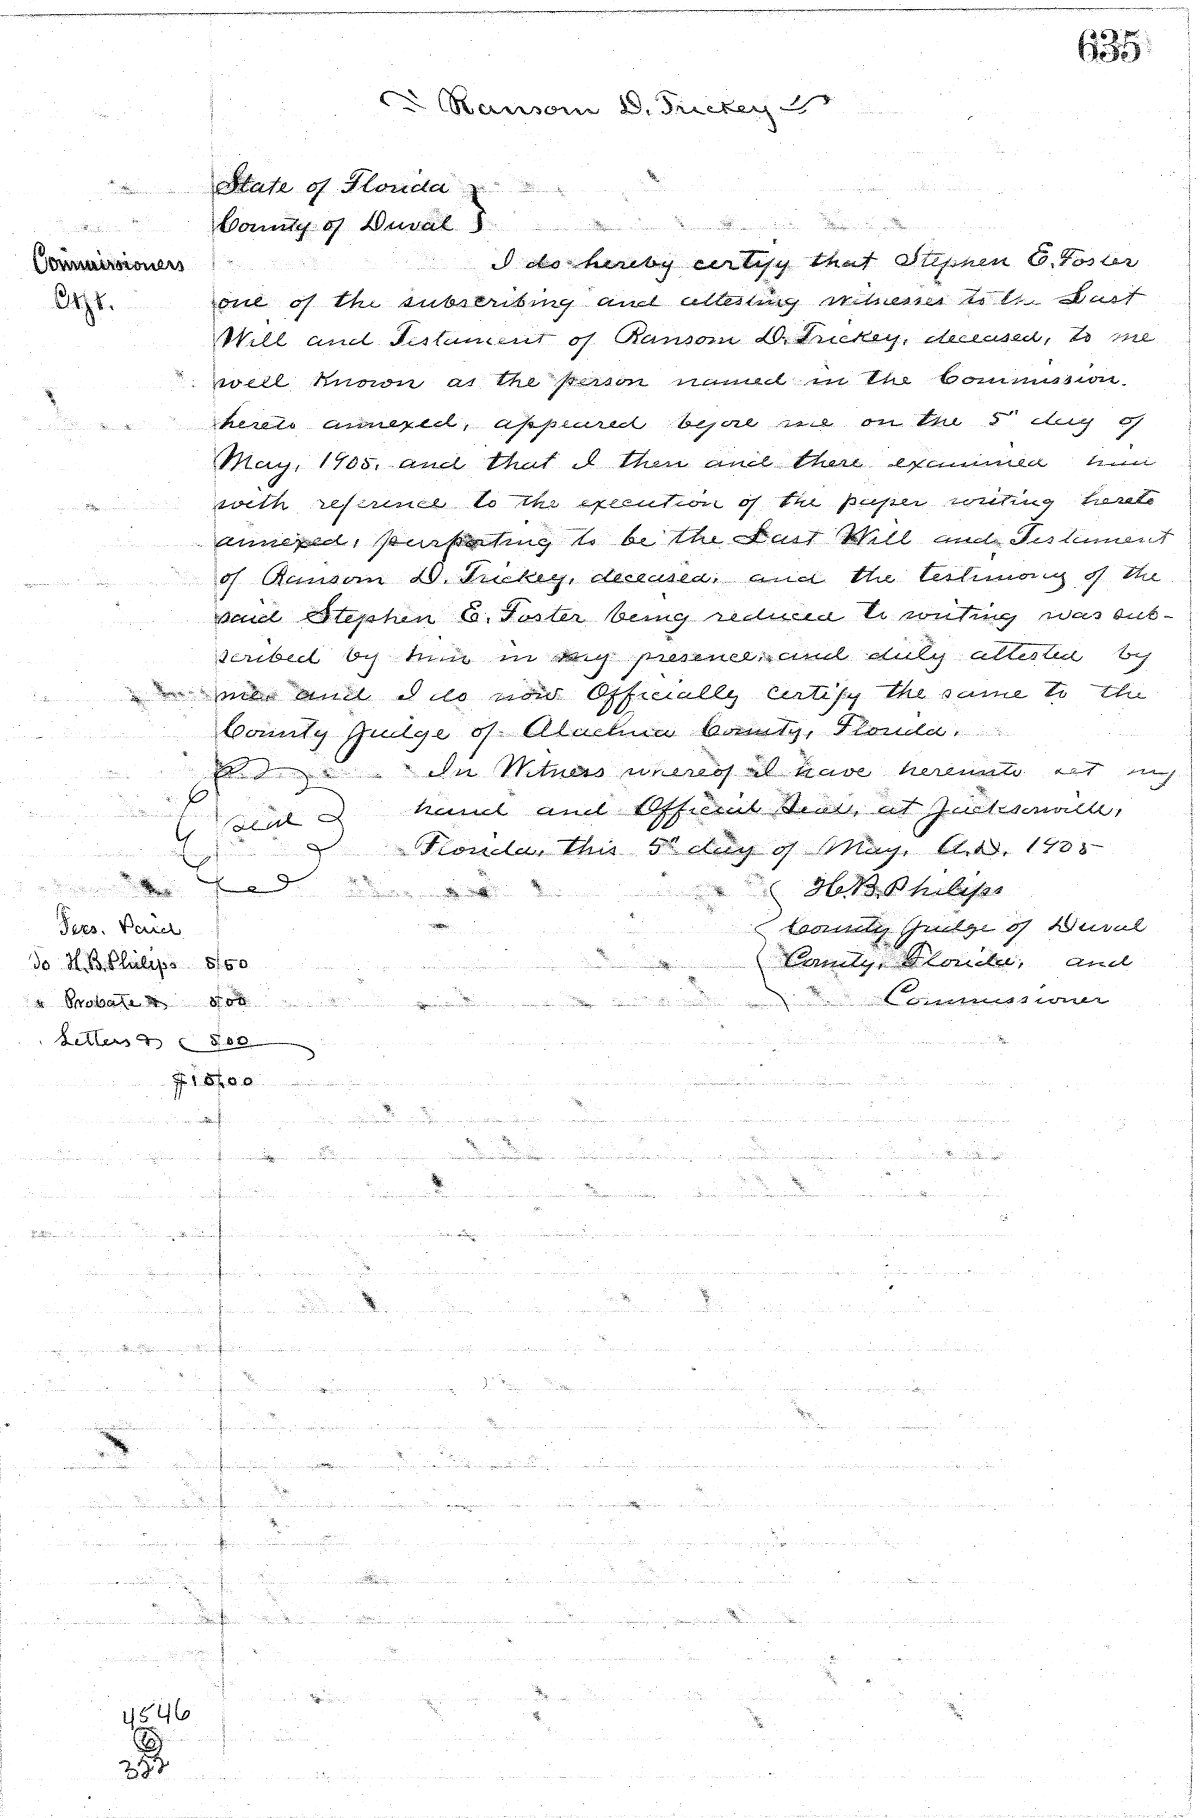 635
Ransom D. Trickey
State of Florida
County of Duval
Commissioners
I do hereby certify that Stephen E. Foster
one of the subscribing and attesting witnesses to the Last
Will and Testament of Ransom D. Trickey, deceased, to me
well known as the person named in the Commission
hereto annexed, appeared before me on the 5" day of
May, 1905, and that I then and there examined him
with reference to the execution of the paper writing hereto
annexed, purporting to be the Last Will and Testament
of Ransom D. Trickey, deceased, and the testimony of the
said Stephen E. Foster being reduced to writing was sub-
scribed by him in my presence, and duly attested by
me. and I do now Officially certify the same to the
County Judge of Alachua County, Florida.
In Witness whereof I have hereunto set my
seal
hand and Official Seal, at Jacksonville,
Florida, this 5" day of May, A.D. 1905
H.B. Philips
County Judge of Duval
County, Florida, and
Commissioner
Fees. Paid
To H.B. Philips 5.50
" Probate
Letters
4546